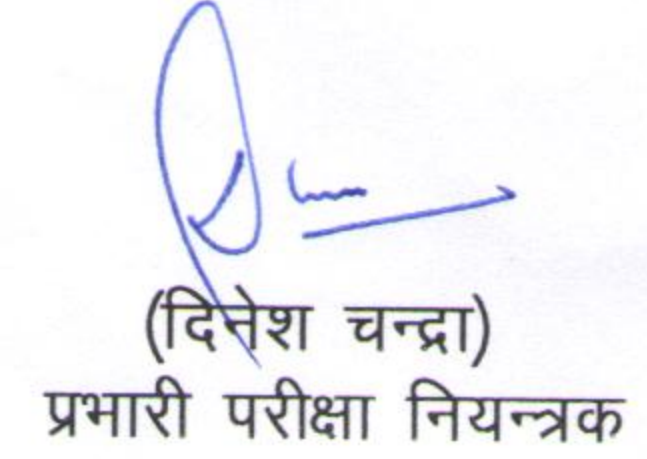 (दिनेश चन्द्रा)
प्रभारी परीक्षा नियन्त्रक